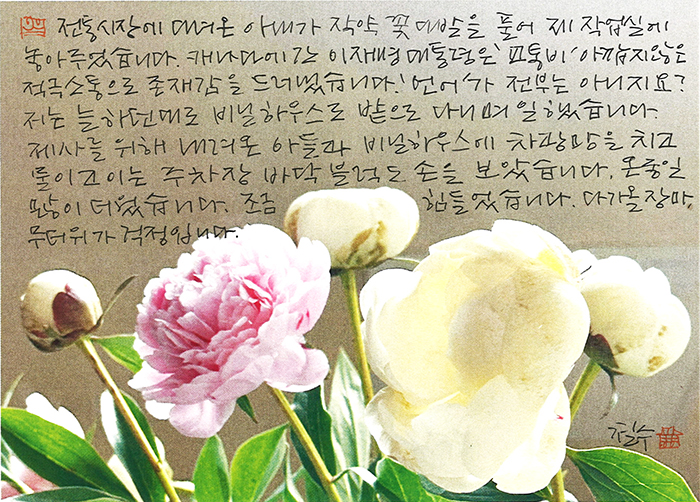 전통시장에 다녀온 아내가 작약 꽃 다발을 풀어 제 작업실에
놓아주었습니다. 캐나다에 간 이재명 대통령은 '교통비' 아깝지않은
적극소통으로 존재감을 드러냈습니다. '언어'가 전부는 아니지요?
저는 늘 하던대로 비닐하우스로 밭으로 다니며 일했습니다.
제사를 위해 내려온 아들과 비닐하우스에 차광망을 치고
물이고이는 주차장 바닥 블럭도 손을 보았습니다. 온종일
많이 더웠습니다. 조금 힘들었습니다. 다가올 장마,
무더위가 걱정입니다.
철수